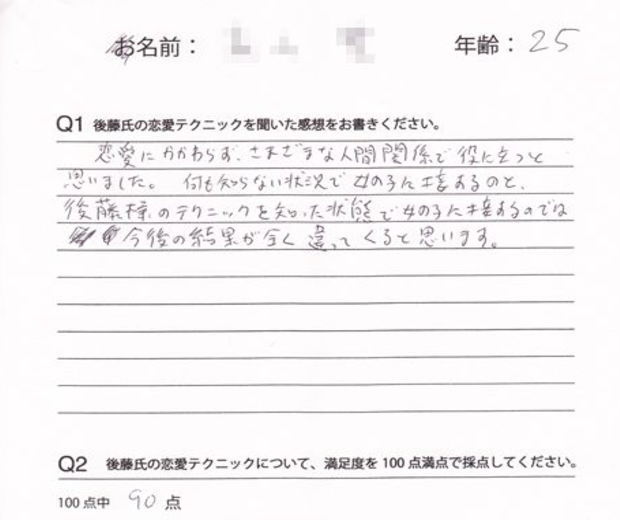 お名前： 年齢：25
Q1 後藤氏の恋愛テクニックを聞いた感想をお書きください。
恋愛にかかわらず、さまざまな人間関係で役に立つと
思いました。 何も知らない状況で女の子に接するのと、
後藤様のテクニックを知った状態で女の子に接するのでは
今後の結果が全く違ってくると思います。
Q2 後藤氏の恋愛テクニックについて、満足度を100点満点で採点してください。
100点中 90 点